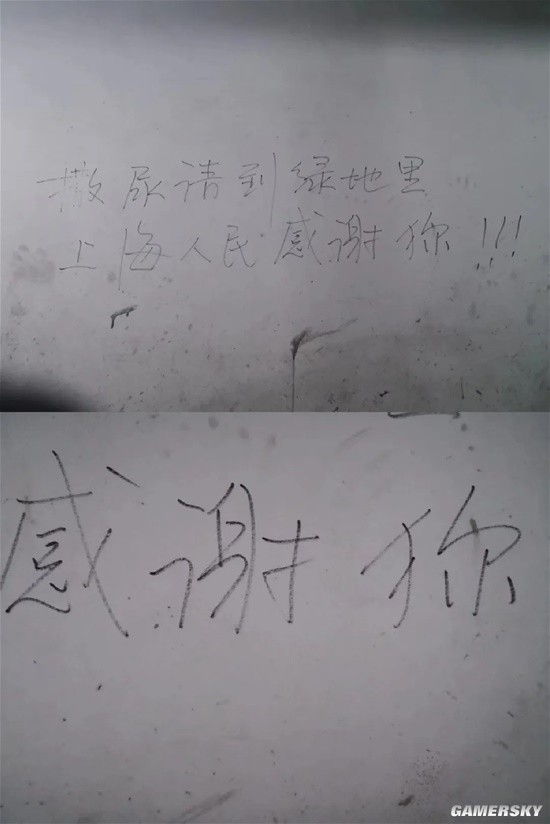 撒尿请到绿地里
上海人民感谢你!!!
感谢你
GAMERSKY